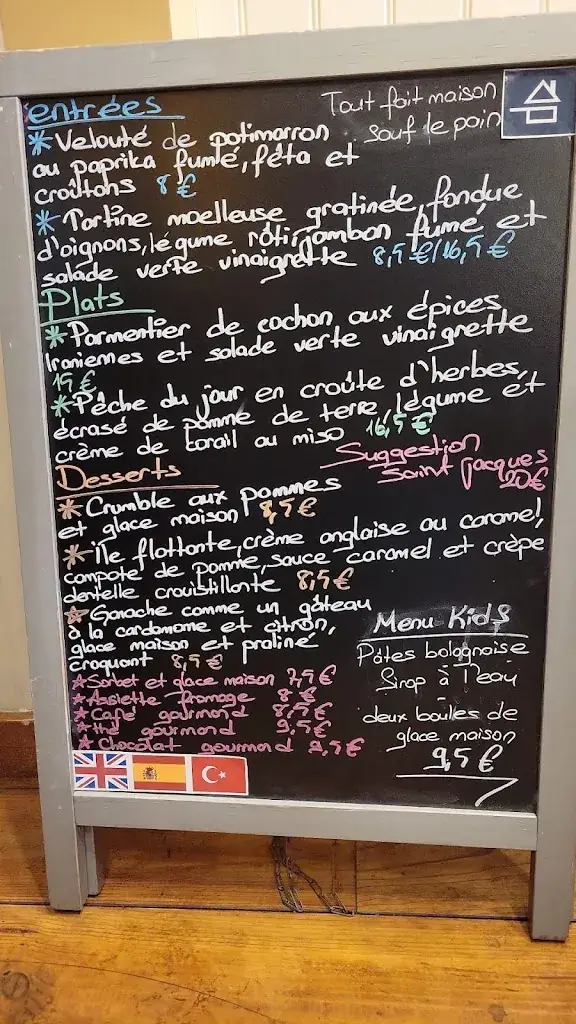 entrées
Tout fait maison
sauf le pain
* Velouté de potimarron
au paprika fumé, féta et
croûtons 8 €
* Tartine moelleuse gratinée, fondue
d'oignons, légume rôti, jambon fumé et
salade verte vinaigrette 8,5 €/16,5 €
Plats
* Parmentier de cochon aux épices
Iraniennes et salade verte vinaigrette
15 €
* Pêche du jour en croûte d'herbes,
écrasé de pomme de terre, légume et
crème de corail au miso 16,5 €
Suggestion
Saint Jacques
20€
Desserts
* Crumble aux pommes
et glace maison 8,5 €
* Ile flottante, crème anglaise au caramel,
compote de pomme, sauce caramel et crèpe
dentelle croustillante 8,5 €
* Ganache comme un gâteau
à la cardamome et citron,
glace maison et praliné
croquant 8,5 €
* Sorbet et glace maison 7,5 €
* Assiette fromage 8 €
* Café gourmand 8,5 €
* thé gourmand 9,5 €
* Chocolat gourmand 9,5 €
Menu Kids
Pâtes bolognaise
Sirop à l'eau
deux boules de
glace maison
9,5 €